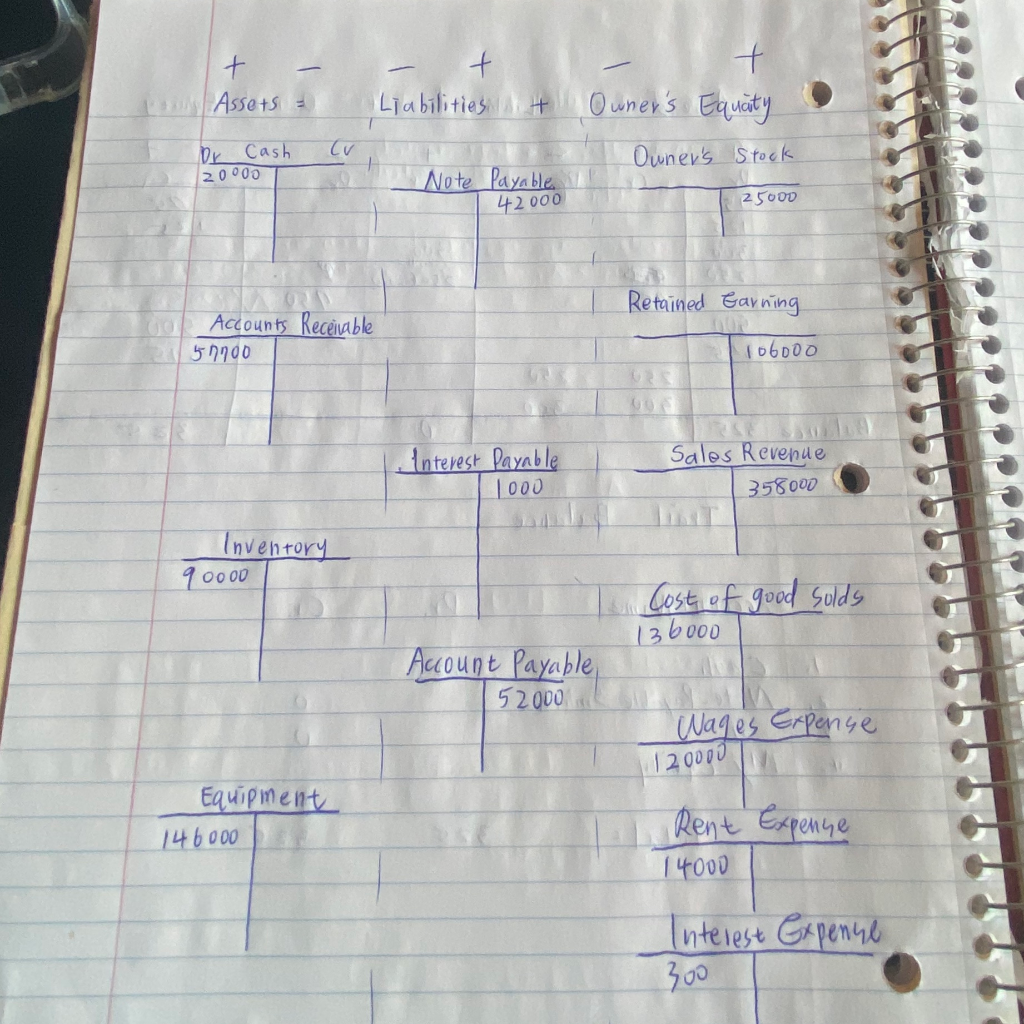 + − − + − +
Assets = Liabilities + Owner's Equity
Dr Cash Cr
20000
Note Payable
42000
Owner's Stock
25000
Accounts Receivable
57700
Retained Earning
106000
Interest Payable
1000
Sales Revenue
358000
Inventory
90000
Cost of good solds
136000
Account Payable
52000
Wages Expense
120000
Equipment
146000
Rent Expense
14000
Interest Expense
300